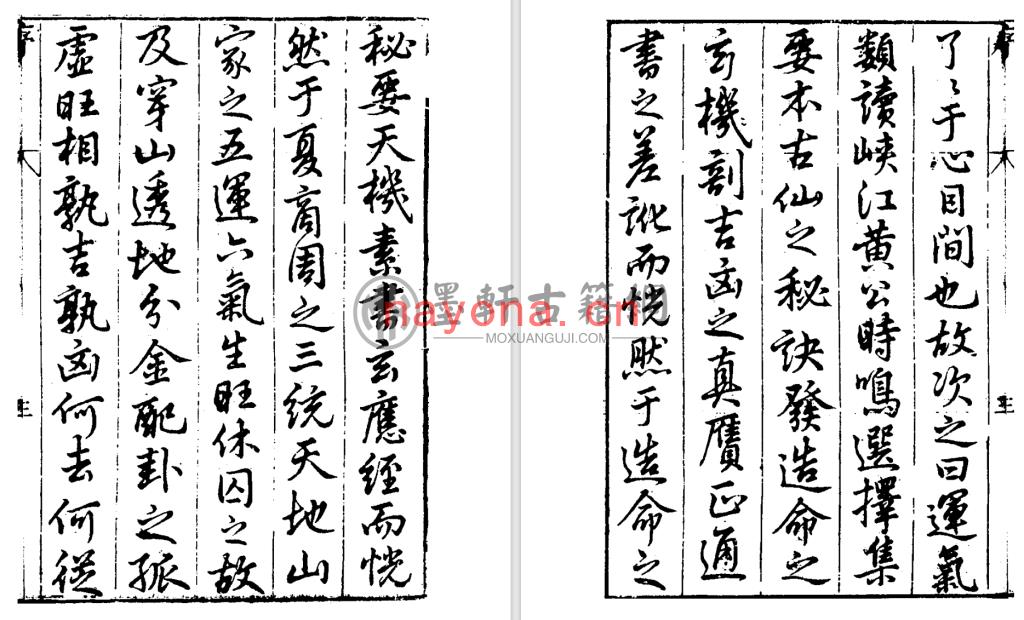 了〻于心目間也故次之曰運氣
類讀峽江黄公時鳴選擇集
要本古仙之秘訣發造命之
玄機剖吉凶之真贋正通
書之差訛而恍然于造命之
秘要天機素書玄應經而恍
然于夏商周之三統天地山
家之五運六氣生旺休囚之故
及穿山透地分金配卦之孤
虛旺相孰吉孰凶何去何從
序
序
墨軒古籍網
nayona.cn
MOXUANGUJI.COM